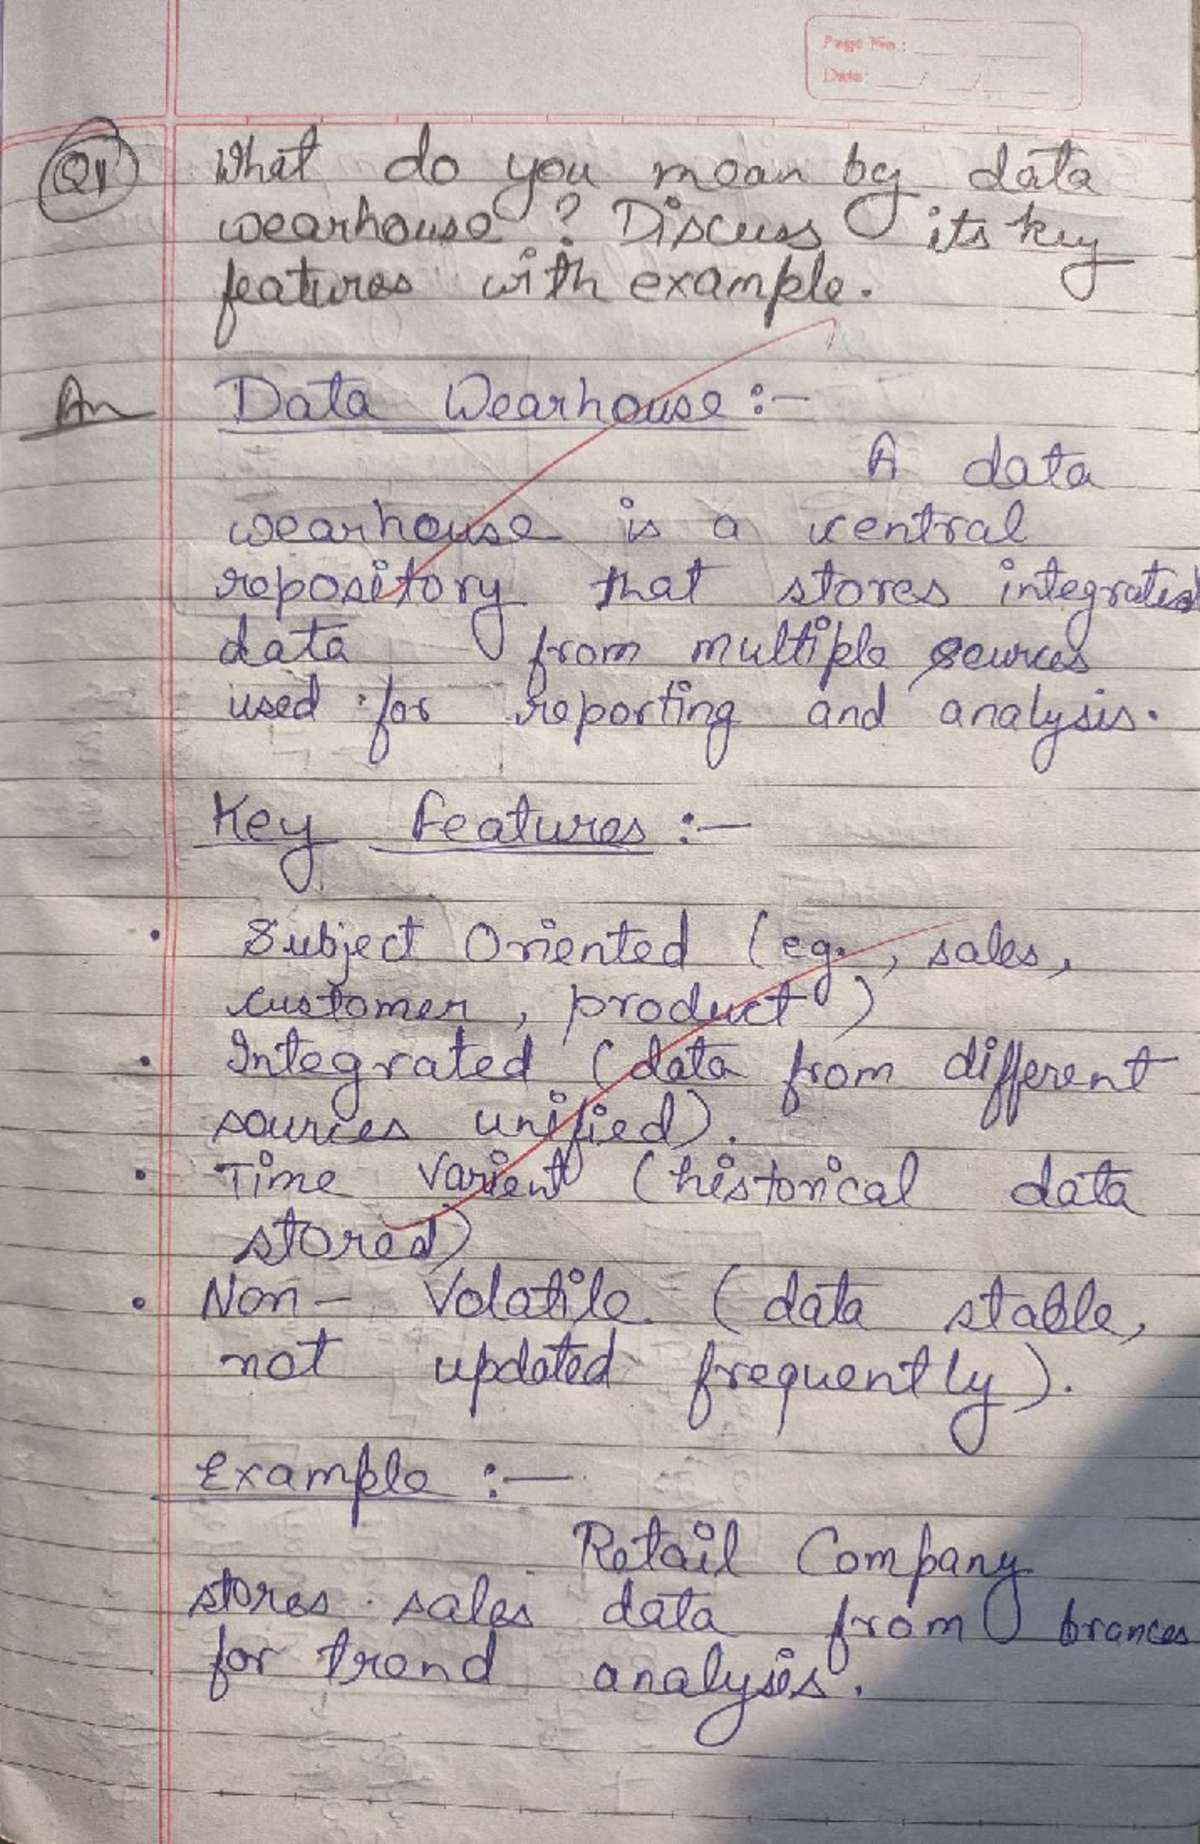 Page No.:
Date: / /
Q1 What do you mean by data
wearhouse? Discuss its key
features with example.
An Data Wearhouse :-
A data
wearhouse is a central
repository that stores integrated
data from multiple sources
used for reporting and analysis.
Key Features :-
• Subject Oriented (eg., sales,
customer, product)
• Integrated (data from different
sources unified).
• Time Varient (historical data
stored)
• Non- Volatile. (data stable,
not updated frequently).
Example :-
Retail Company
stores sales data from brances
for trend analysis.